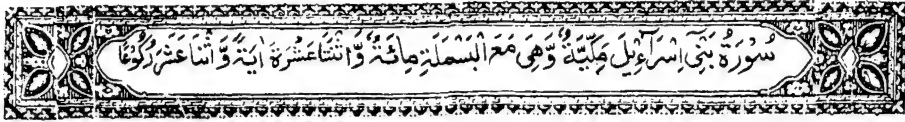 سُوْرَةُ بَنِيْٓ اِسْرَآءِيْلَ مَكِّيَّةٌ وَّهِىَ مَعَ الْبَسْمَلَةِ مِائَةٌ وَّاثْنَتَا عَشْرَةَ اٰيَةً وَّ اثْنَا عَشَرَ رُكُوْعًا